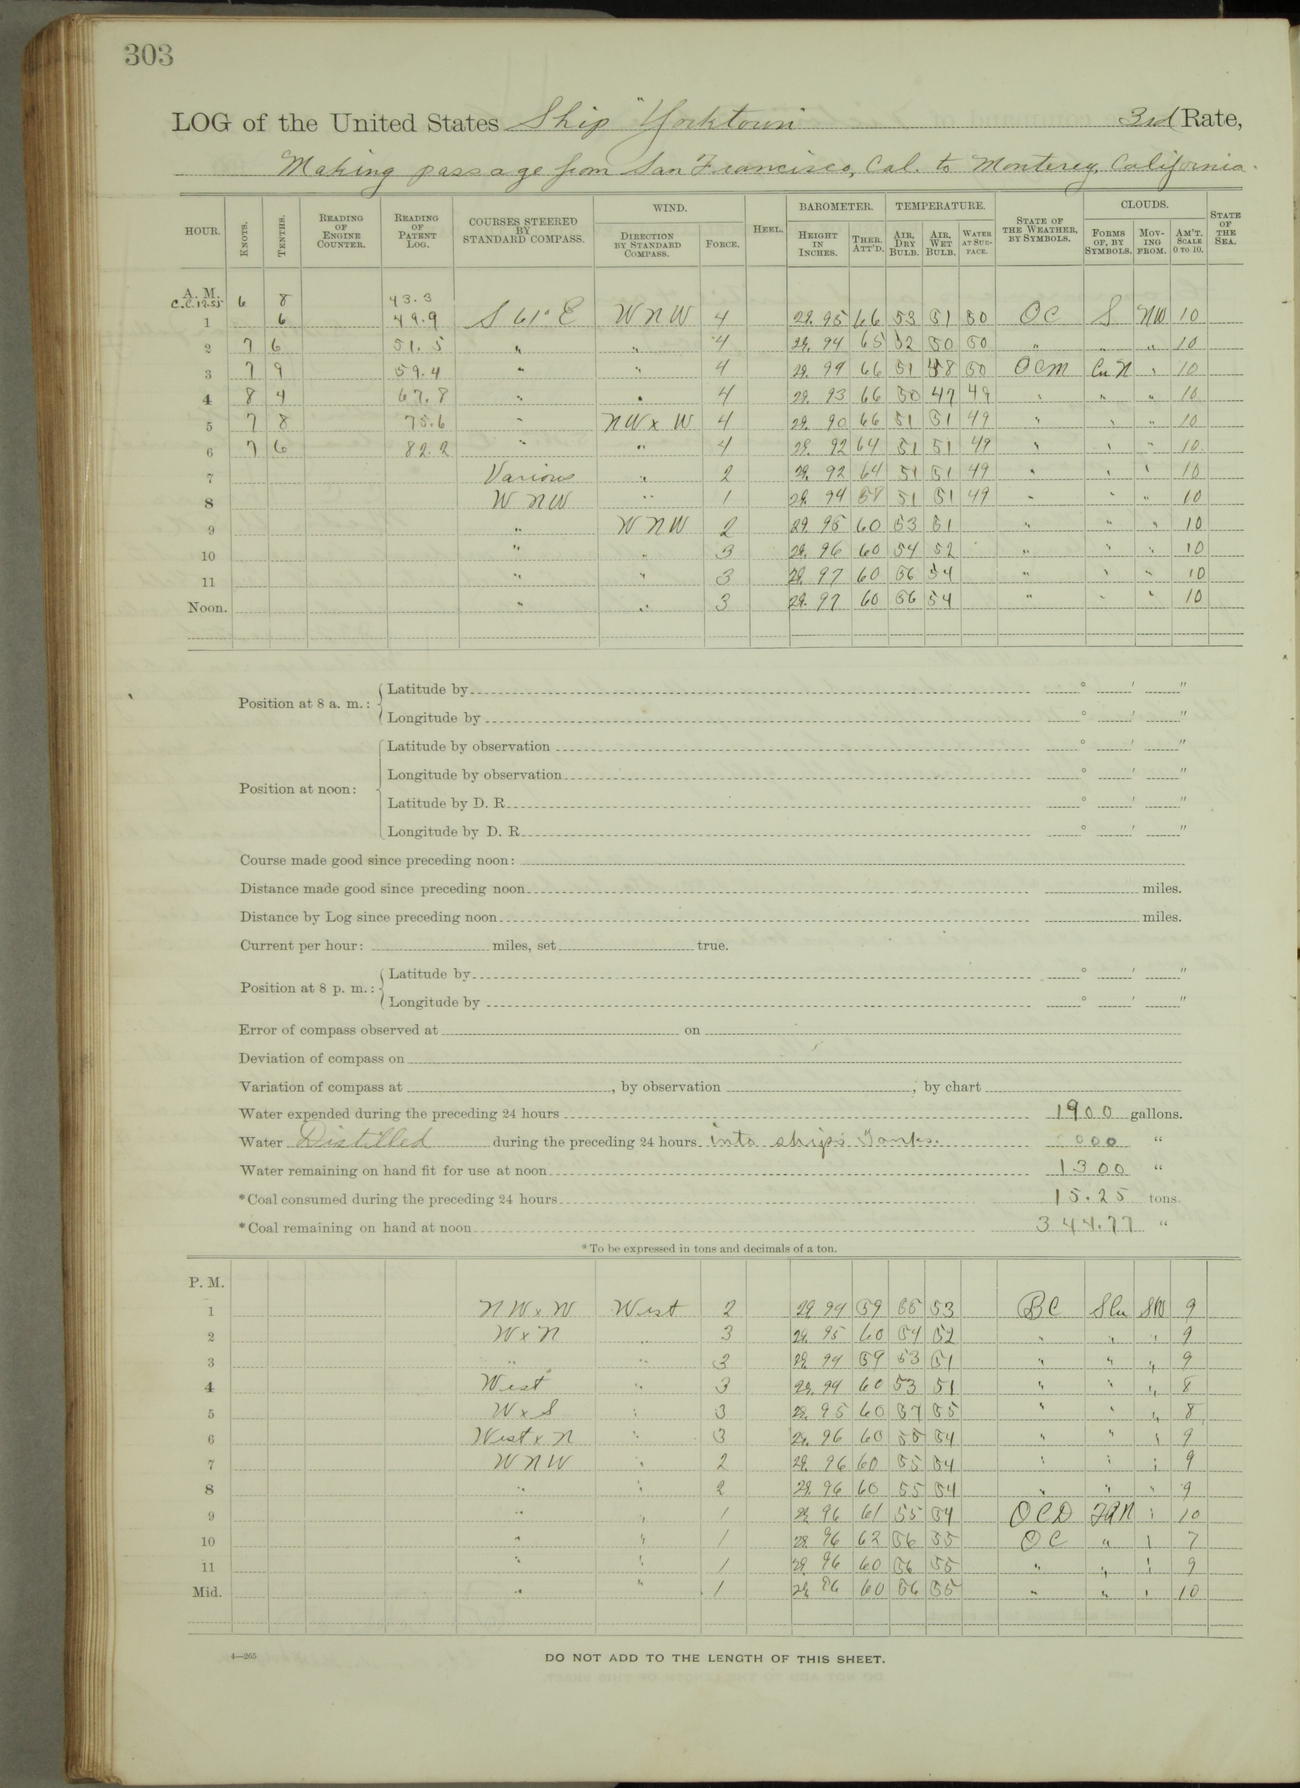 303
LOG of the United States Ship "Yorktown 3rd Rate,
Making passage from San Francisco, Cal. to Monterey, California.
HOUR. KNOTS. TENTHS. READING OF ENGINE COUNTER. READING OF PATENT LOG. COURSES STEERED BY STANDARD COMPASS. WIND. DIRECTION BY STANDARD COMPASS. FORCE. HEEL. BAROMETER. HEIGHT IN INCHES. THER. ATT'D. TEMPERATURE. AIR, DRY BULB. AIR, WET BULB. WATER AT SURFACE. STATE OF THE WEATHER, BY SYMBOLS. CLOUDS. FORMS OF, BY SYMBOLS. MOVING FROM. AM'T. SCALE 0 TO 10. STATE OF THE SEA.
A. M.
C.C. 12.55 6 8 43.3
1 6 49.9 S 61° E WNW 4 29.95 66 53 51 50 OC S NW 10
2 7 6 51.5 " " 4 29.94 65 52 50 50 " " " 10
3 7 9 59.4 " " 4 29.94 66 51 48 50 OCM Cu N " 10
4 8 4 67.8 " " 4 29.93 66 50 47 49 " " " 10
5 7 8 75.6 " NW x W 4 29.90 66 51 51 49 " " " 10
6 7 6 82.2 " " 4 29.92 64 51 51 49 " " " 10
7 Various " 2 29.92 64 51 51 49 " " " 10
8 WNW " 1 29.94 58 51 51 49 " " " 10
9 " WNW 2 29.95 60 53 51 " " " 10
10 " " 3 29.96 60 54 52 " " " 10
11 " " 3 29.97 60 56 54 " " " 10
Noon. " " 3 29.97 60 56 54 " " " 10
Position at 8 a. m.: Latitude by ° ' "
Longitude by ° ' "
Position at noon: Latitude by observation ° ' "
Longitude by observation ° ' "
Latitude by D. R. ° ' "
Longitude by D. R. ° ' "
Course made good since preceding noon:
Distance made good since preceding noon miles.
Distance by Log since preceding noon miles.
Current per hour: miles, set true.
Position at 8 p. m.: Latitude by ° ' "
Longitude by ° ' "
Error of compass observed at on
Deviation of compass on
Variation of compass at , by observation , by chart
Water expended during the preceding 24 hours 1900 gallons.
Water Distilled during the preceding 24 hours into ship's Tanks. 000 "
Water remaining on hand fit for use at noon 1300 "
*Coal consumed during the preceding 24 hours 15.25 tons.
*Coal remaining on hand at noon 344.77 "
*To be expressed in tons and decimals of a ton.
P. M.
1 NW x W West 2 29.94 59 55 53 BC S Cu SW 9
2 W x N " 3 29.95 60 54 52 " " " 9
3 " " 3 29.94 59 53 51 " " " 9
4 West " 3 29.94 60 53 51 " " " 8
5 W x S " 3 29.95 60 57 55 " " " 8
6 West x N " 3 29.96 60 55 54 " " " 9
7 WNW " 2 29.96 60 55 54 " " " 9
8 " " 2 29.96 60 55 54 " " " 9
9 " " 1 29.96 61 55 54 OCD " 10
10 " " 1 29.96 62 56 55 OC " " 7
11 " " 1 29.96 60 56 55 " " " 9
Mid. " " 1 29.96 60 56 55 " " " 10
4—265
DO NOT ADD TO THE LENGTH OF THIS SHEET.